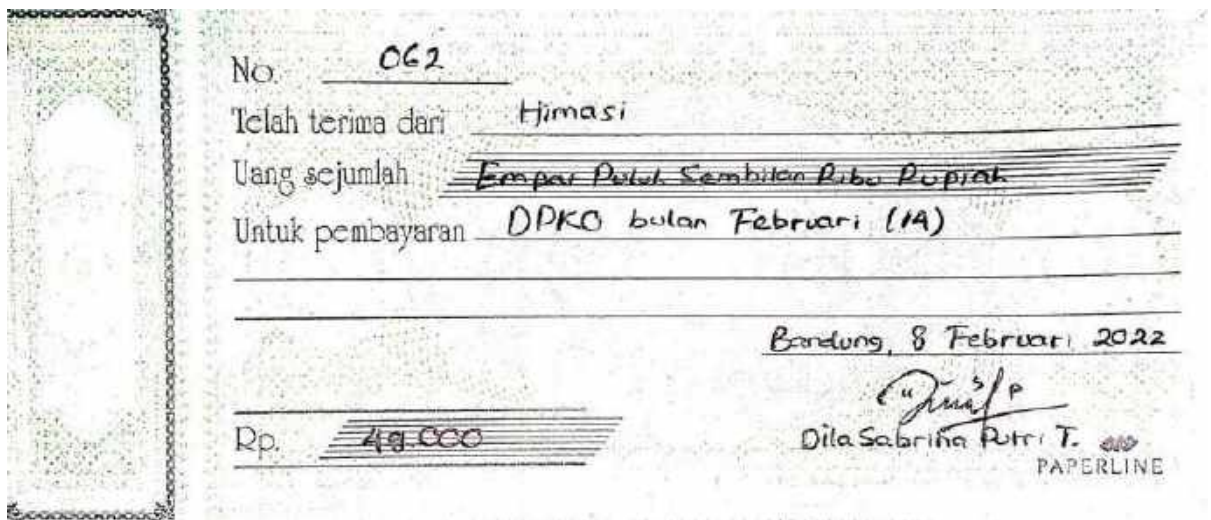 No. 062
Telah terima dari Himasi
Uang sejumlah Empat Puluh Sembilan Ribu Rupiah
Untuk pembayaran DPKO bulan Februari (1A)
Bandung, 8 Februari 2022
Rp. 49.000
Dila Sabrina Putri T.
PAPERLINE